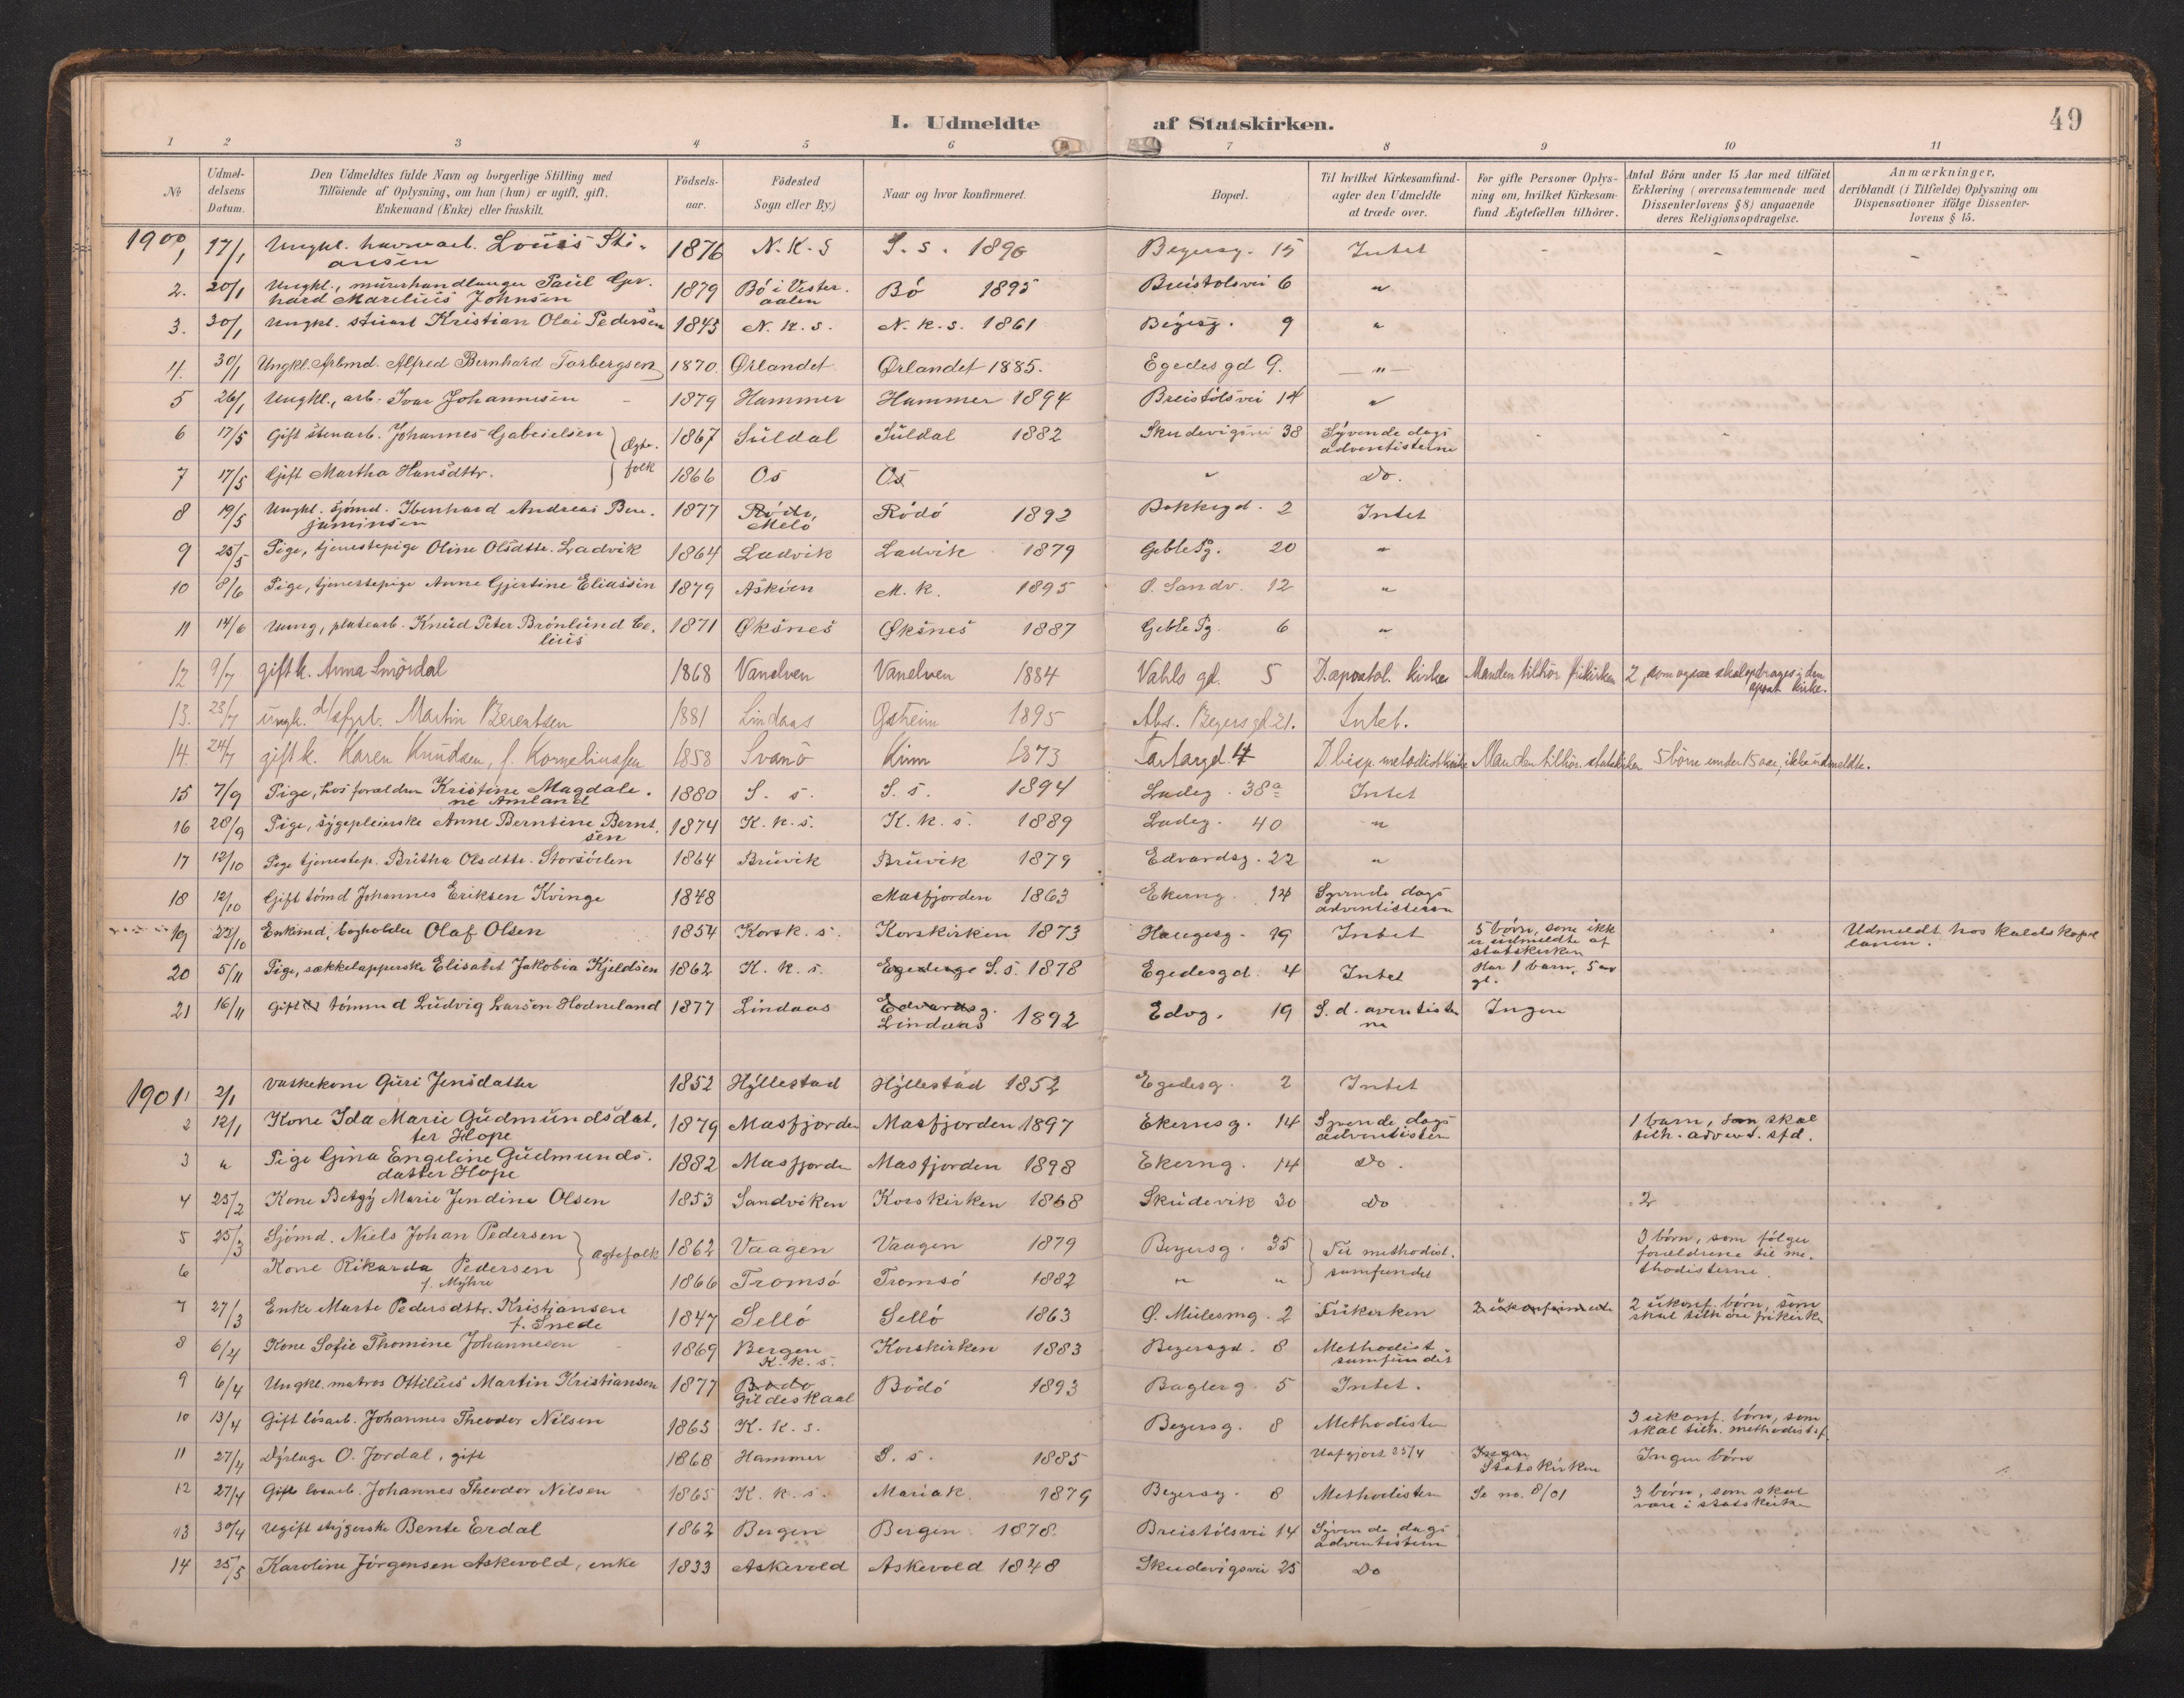 I. Udmeldte af Statskirken. 49
1 2 3 4 5 6 7 8 9 10 11
№ Udmeldelsens Datum. Den Udmeldtes fulde Navn og borgerlige Stilling med Tilföiende af Oplysning, om han (hun) er ugift, gift, Enkemand (Enke) eller fraskilt. Födselsaar. Födested Sogn eller By.) Naar og hvor konfirmeret. Bopæl. Til hvilket Kirkesamfund agter den Udmeldte at træde over. For gifte Personer Oplysning om, hvilket Kirkesamfund Ægtefællen tilhörer. Antal Börn under 15 Aar med tilföiet Erklæring (overensstemmende med Dissenterlovens § 8) angaaende deres Religionsopdragelse. Anmærkninger, deriblandt (i Tilfælde) Oplysning om Dispensationer ifölge Dissenterlovens § 15.
1900
1 17/1 Ungkl. havnearb. Louis Stiansen 1876 N.K.S S.s. 1890 Beyersg. 15 Intet - - -
2. 20/1 Ungkl., murerhandlanger Paul Gerhard Marelius Johnsen 1879 Bö i Vesteraalen Bö 1895 Breistolsvei 6 "
3. 30/1 Ungkl. stuart Kristian Olai Pedersen 1845 N.K.s. N.K.s. 1861 Beyersg. 9 "
4. 30/1 Ungkl. Arbmd. Alfred Bernhard Torbergsen 1870. Ørlandet Ørlandet 1885. Egedesgd 9. — " —
5 26/1 Ungkl., arb. Ivar Johannesen - 1879 Hammer Hammer 1894 Breistölsvei 14 "
6 17/5 Gift stenarb. Johannes Gabrielsen } Ægte- 1867 Suldal Suldal 1882 Skudevigsvei 38 Syvende dags adventisterne
7 17/5 Gift Martha Hansdttr. } folk 1866 Os Os " Do.
8 19/5 Ungkl. sjömd. Ibenhard Andreas Benjaminsen 1877 Rödö, Melö Rödö 1892 Bakkegd. 2 Intet
9 25/5 Pige, tjenestepige Oline Olsdttr. Ladvik 1864 Ladvik Ladvik 1879 Geblepg. 20 "
10 8/6 Pige, tjenestepige Anne Gjertine Eliassen 1879 Asköen M.k. 1895 Ø. Sandv. 12 "
11 14/6 Ung, platearb. Knud Peter Brönlund Celius 1871 Øksnes Øksnes 1887 Geblepg. 6 "
12 9/7 gift k. Anna Smördal 1868 Vanelven Vanelven 1884 Vahls gd. 5 D. apostol. kirke Manden tilhör frikirken 2, som ogsaa skal opdrages i den apost. kirke.
13. 23/7 ungk. Martin Berentsen 1881 Lindaas 1895 Abs. Beyersgd 21. Intet.
14. 24/7 gift k. Karen Knudsen, f. Korneliussen 1858 Svanö Kinn 1873 Tartargd. 4 D. bisp. metodistkirke Manden tilhör statskirken 5 börn under 15 aar, ikke udmeldte.
15 7/9 Pige, hos forældre Kristine Magdalene Amland 1880 S. s. S. s. 1894 Ladeg. 38a Intet
16 28/9 Pige, sygepleierske Anne Berntine Berntsen 1874 K.k.s. K.k.s. 1889 Ladeg. 40 "
17 12/10 Pige tjenestep. Britha Olsdttr. Storsöen 1864 Bruvik Bruvik 1879 Edvardsg. 22 "
18 12/10 Gift tömd Johannes Eriksen Kvinge 1848 Masfjorden 1863 Ekerng. 14 Syvende dags adventisterne
19 22/10 Enkmd, bogholder Olaf Olsen 1854 Korsk. s. Korskirken 1873 Haugesg. 19 Intet 5 börn, som ikk er udmeldte af statskirken Udmeldt hos kaldskapellanen.
20 5/11 Pige, sækkelapperske Elisabet Jakobia Kjeldsen 1862 K.k.s. Egedesge S.s. 1878 Egedesgd. 4 Intet Har 1 barn, 5 aar gl.
21 16/11 Gift tömmd Ludvig Larsen Hodneland 1877 Lindaas Edvardsg. Lindaas 1892 Edvg. 19 S.d. aventisterne Ingen
1901
1 2/1 Vaskekone Guri Jensdatter 1852 Hyllestad Hyllestad 1852 Egedesg. 2 Intet
2 12/1 Kone Ida Marie Gudmundsdatter Hope 1879 Masfjorden Masfjorden 1897 Ekernesg. 14 Syvende dags adventisten 1 barn, som skal tilh. advent. sfd.
3 " Pige Gina Engeline Gudmundsdatter Hope 1882 Masfjorden Masfjorden 1898 Ekerng. 14 Do.
4 23/2 Kone Betgy Marie Jendine Olsen 1853 Sandviken Korskirken 1868 Skudevik 30 Do 2
5 25/3 Sjömd. Niels Johan Pedersen } ægtefolk 1862 Vaagen Vaagen 1879 Beyersg. 35 } Til methodist- 3 börn, som fölger forældrene til methodisterne.
6 Kone Rikarda Pedersen f. Myhre 1866 Tromsö Tromsö 1882 " " samfundet
7 27/3 Enke Marte Pedersdttr. Kristiansen f. Snede 1847 Sellö Sellö 1863 Ø. Mulesmg. 2 Frikirken 2 ukonfirmerte 2 ukonf. börn, som skal tilhöre frikirke
8 6/4 Kone Sofie Thomine Johannesen 1869 Bergen K.k.s. Korskirken 1883 Beyersgd. 8 Methodistsamfundet
9 6/4 Ungkl. matros Ottilius Martin Kristiansen 1877 Bodö Gildeskaal Bodö 1893 Baglerg. 5 Intet.
10 13/4 Gift lösarb. Johannes Theodor Nilsen 1865 K.k.s. Beyersg. 8 Methodisten 3 ukonf. börn, som skal tilh. methodistsf.
11 27/4 Dyrlæge O. Jordal, gift 1868 Hammer S.s. 1885 Uafgjort 25/4 Ingen Statskirken Ingen börn
12 27/4 Gift lösarb. Johannes Theodor Nilsen 1865 K.k.s. Mariak. 1879 Beyersg. 8 Methodisten Se no. 8/01 3 börn, som skal være i statskirken
13 30/4 Ugift strygerske Bente Erdal 1862 Bergen Bergen 1878. Breistölsvei 14 Syvende dags adventisterne
14 25/5 Karoline Jörgensen Askevold, enke 1833 Askevold Askevold 1848 Skudevigsvei 25 Do